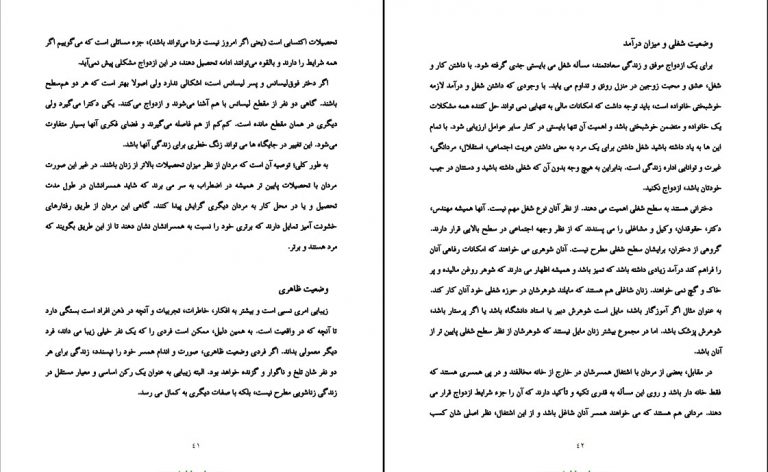 تحصیلات اکتسابی است (یعنی اگر امروز نیست فردا می‌تواند باشد)؛ جزء مسائلی است که می‌گوییم اگر
همه شرایط را دارند و بالقوه می‌توانند ادامه تحصیل دهند، در این ازدواج مشکلی پیش نمی‌آید.
اگر دختر فوق‌لیسانس و پسر لیسانس است، اشکالی ندارد ولی اصولا بهتر است که هر دو هم‌سطح
باشند. گاهی دو نفر از مقطع لیسانس با هم آشنا می‌شوند و ازدواج می‌کنند. یکی دکترا می‌گیرد ولی
دیگری در همان مقطع مانده است. کم‌کم از هم فاصله می‌گیرند و فضای فکری آنها بسیار متفاوت
می‌شود. این تغییر در جایگاه ها می تواند زنگ خطری برای زندگی آنها باشد.
به طور کلی؛ توصیه آن است که مردان از نظر میزان تحصیلات بالاتر از زنان باشند. در غیر این صورت
مردان با تحصیلات پایین تر همیشه در اضطراب به سر می برند که شاید همسرانشان در طول مدت
تحصیل و یا در محل کار به مردان دیگری گرایش پیدا کنند. گاهی این مردان از طریق رفتارهای
خشونت آمیز تمایل دارند که برتری خود را نسبت به همسرانشان نشان دهند تا از این طریق بگویند که
مرد هستند و برتر.
وضعیت ظاهری
زیبایی امری نسبی است و بیشتر به افکار، خاطرات، تجربیات و آنچه در ذهن افراد است بستگی دارد
تا آنچه که در واقعیت است. به همین دلیل، ممکن است فردی را که یک نفر خیلی زیبا می داند، فرد
دیگر معمولی بداند. اگر فردی وضعیت ظاهری، صورت و اندام همسر خود را نپسندد، زندگی برای هر
دو نفر شان تلخ و ناگوار و گزنده خواهد بود. البته زیبایی به عنوان یک رکن اساسی و معیار مستقل در
زندگی زناشویی مطرح نیست، بلکه با صفات دیگری به کمال می رسد.
٤١
وضعیت شغلی و میزان درآمد
برای یک ازدواج موفق و زندگی سعادتمند، مسأله شغل می بایستی جدی گرفته شود. با داشتن کار و
شغل، عشق و محبت زوجین در منزل رونق و تداوم می یابد. با وجودی که داشتن شغل و درآمد لازمه
خوشبختی خانواده است، باید توجه داشت که امکانات مالی به تنهایی نمی تواند حل کننده همه مشکلات
یک خانواده و متضمن خوشبختی باشد و اهمیت آن تنها بایستی در کنار سایر عوامل ارزیابی شود. با تمام
این ها به یاد داشته باشید شغل داشتن برای یک مرد به معنی داشتن هویت اجتماعی، استقلال، مردانگی،
غیرت و توانایی اداره زندگی است. بنابراین به هیچ وجه بدون آن که شغلی داشته باشید و دستتان در جیب
خودتان باشد، ازدواج نکنید.
دخترانی هستند به سطح شغلی اهمیت می دهند. از نظر آنان نوع شغل مهم نیست. آنها همیشه مهندس،
دکتر، حقوقدان، وکیل و مشاغلی را می پسندند که از نظر وجهه اجتماعی در سطح بالایی قرار دارند.
گروهی از دختران، برایشان سطح شغلی مطرح نیست. آنان شوهری می خواهند که امکانات رفاهی آنان
را فراهم کند درآمد زیادی داشته باشد که تمیز باشد و همیشه اظهار می دارند که شوهر روغن مالیده و پر
خاک و گچ نمی خواهند. زنان شاغلی هم هستند که مایلند شوهرشان در حوزه شغلی خود آنان کار کند.
به عنوان مثال اگر آموزگار باشد، مایل است شوهرش دبیر یا استاد دانشگاه باشد یا اگر پرستار باشد،
شوهرش پزشک باشد. اما در مجموع بیشتر زنان مایل نیستند که شوهرشان از نظر سطح شغلی پایین تر از
آنان باشد.
در مقابل، بعضی از مردان با اشتغال همسرشان در خارج از خانه مخالفند و در پی همسری هستند که
فقط خانه دار باشد و روی این مسأله به قدری تکیه و تأکید دارند که آن را جزء شرایط ازدواج قرار می
دهند. مردانی هم هستند که می خواهند همسر آنان شاغل باشد و از این اشتغال، نظر اصلی شان کسب
٤٢